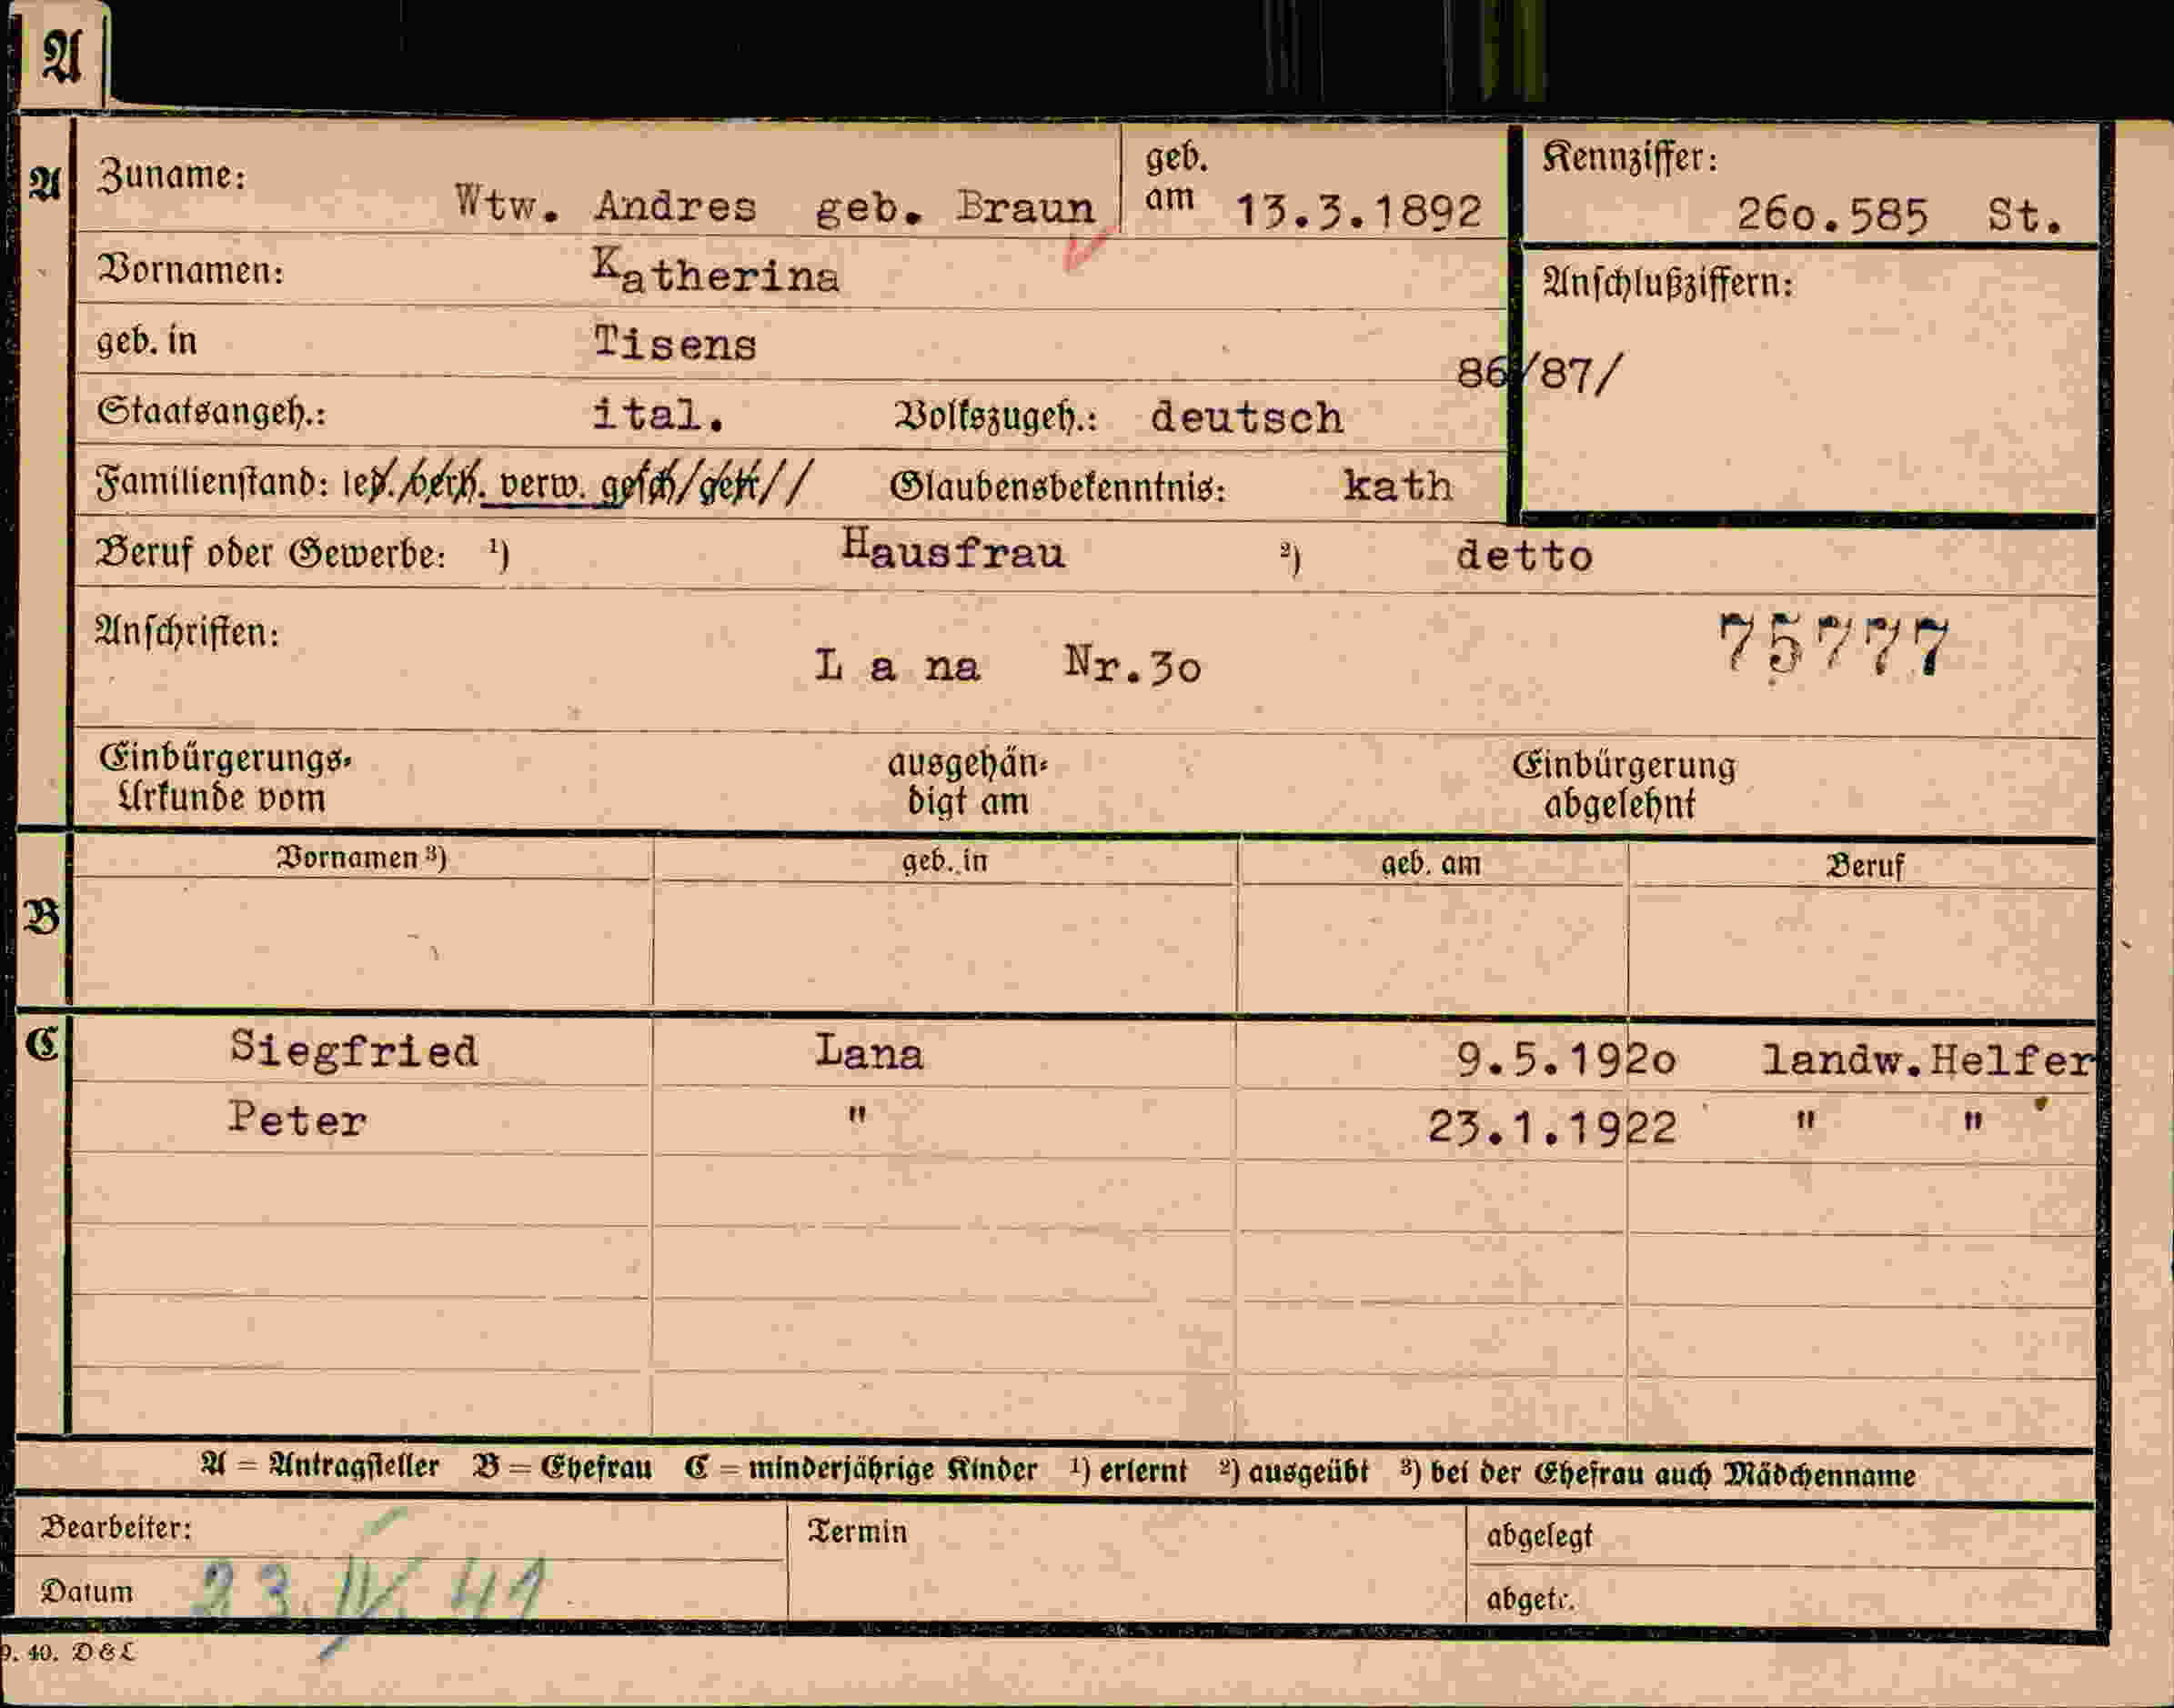 A
A
Zuname: Wtw. Andres geb. Braun
geb. am 13.3.1892
Kennziffer: 26o.585 St.
Vornamen: Katherina
Anschlußziffern:
geb. in Tisens
86/87/
Staatsangeh.: ital. Volkszugeh.: deutsch
Familienstand: led./verh. verw. gesch/getr// Glaubensbekenntnis: kath
Beruf oder Gewerbe: ¹) Hausfrau ²) detto
Anschriften: L a na Nr.3o 75777
Einbürgerungs- ausgehän- Einbürgerung
Urkunde vom digt am abgelehnt
B
Vornamen ³) geb. in geb. am Beruf
C
Siegfried Lana 9.5.192o landw.Helfer
Peter " 23.1.1922 " "
A = Antragsteller B = Ehefrau C = minderjährige Kinder ¹) erlernt ²) ausgeübt ³) bei der Ehefrau auch Mädchenname
Bearbeiter: Termin abgelegt
Datum 23. IV. 41 abgetr.
9. 40. D & L